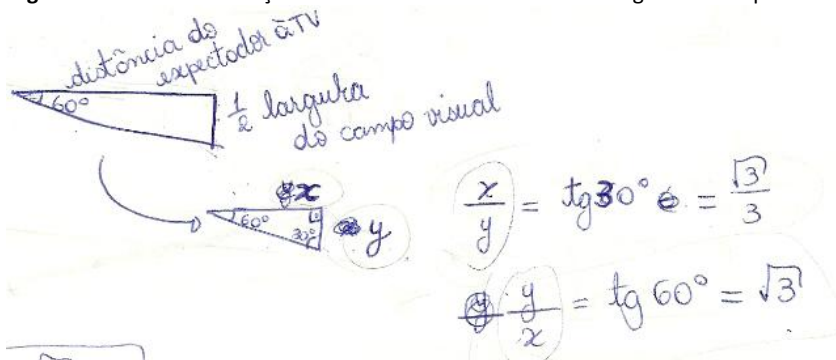 distância do
expectador à TV
60°
1/2 largura
do campo visual
x
60°
30°
y
x/y = tg 30° = √3/3
y/x = tg 60° = √3